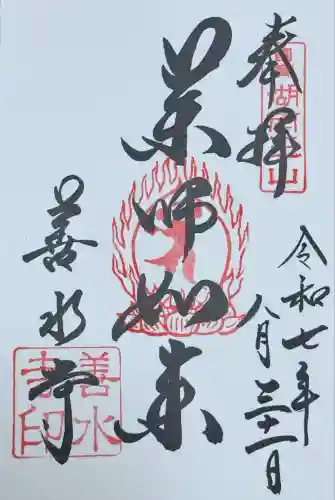 奉拝
湖南三山
令和七年
八月三十一日
薬師如来
善水寺
善水寺印